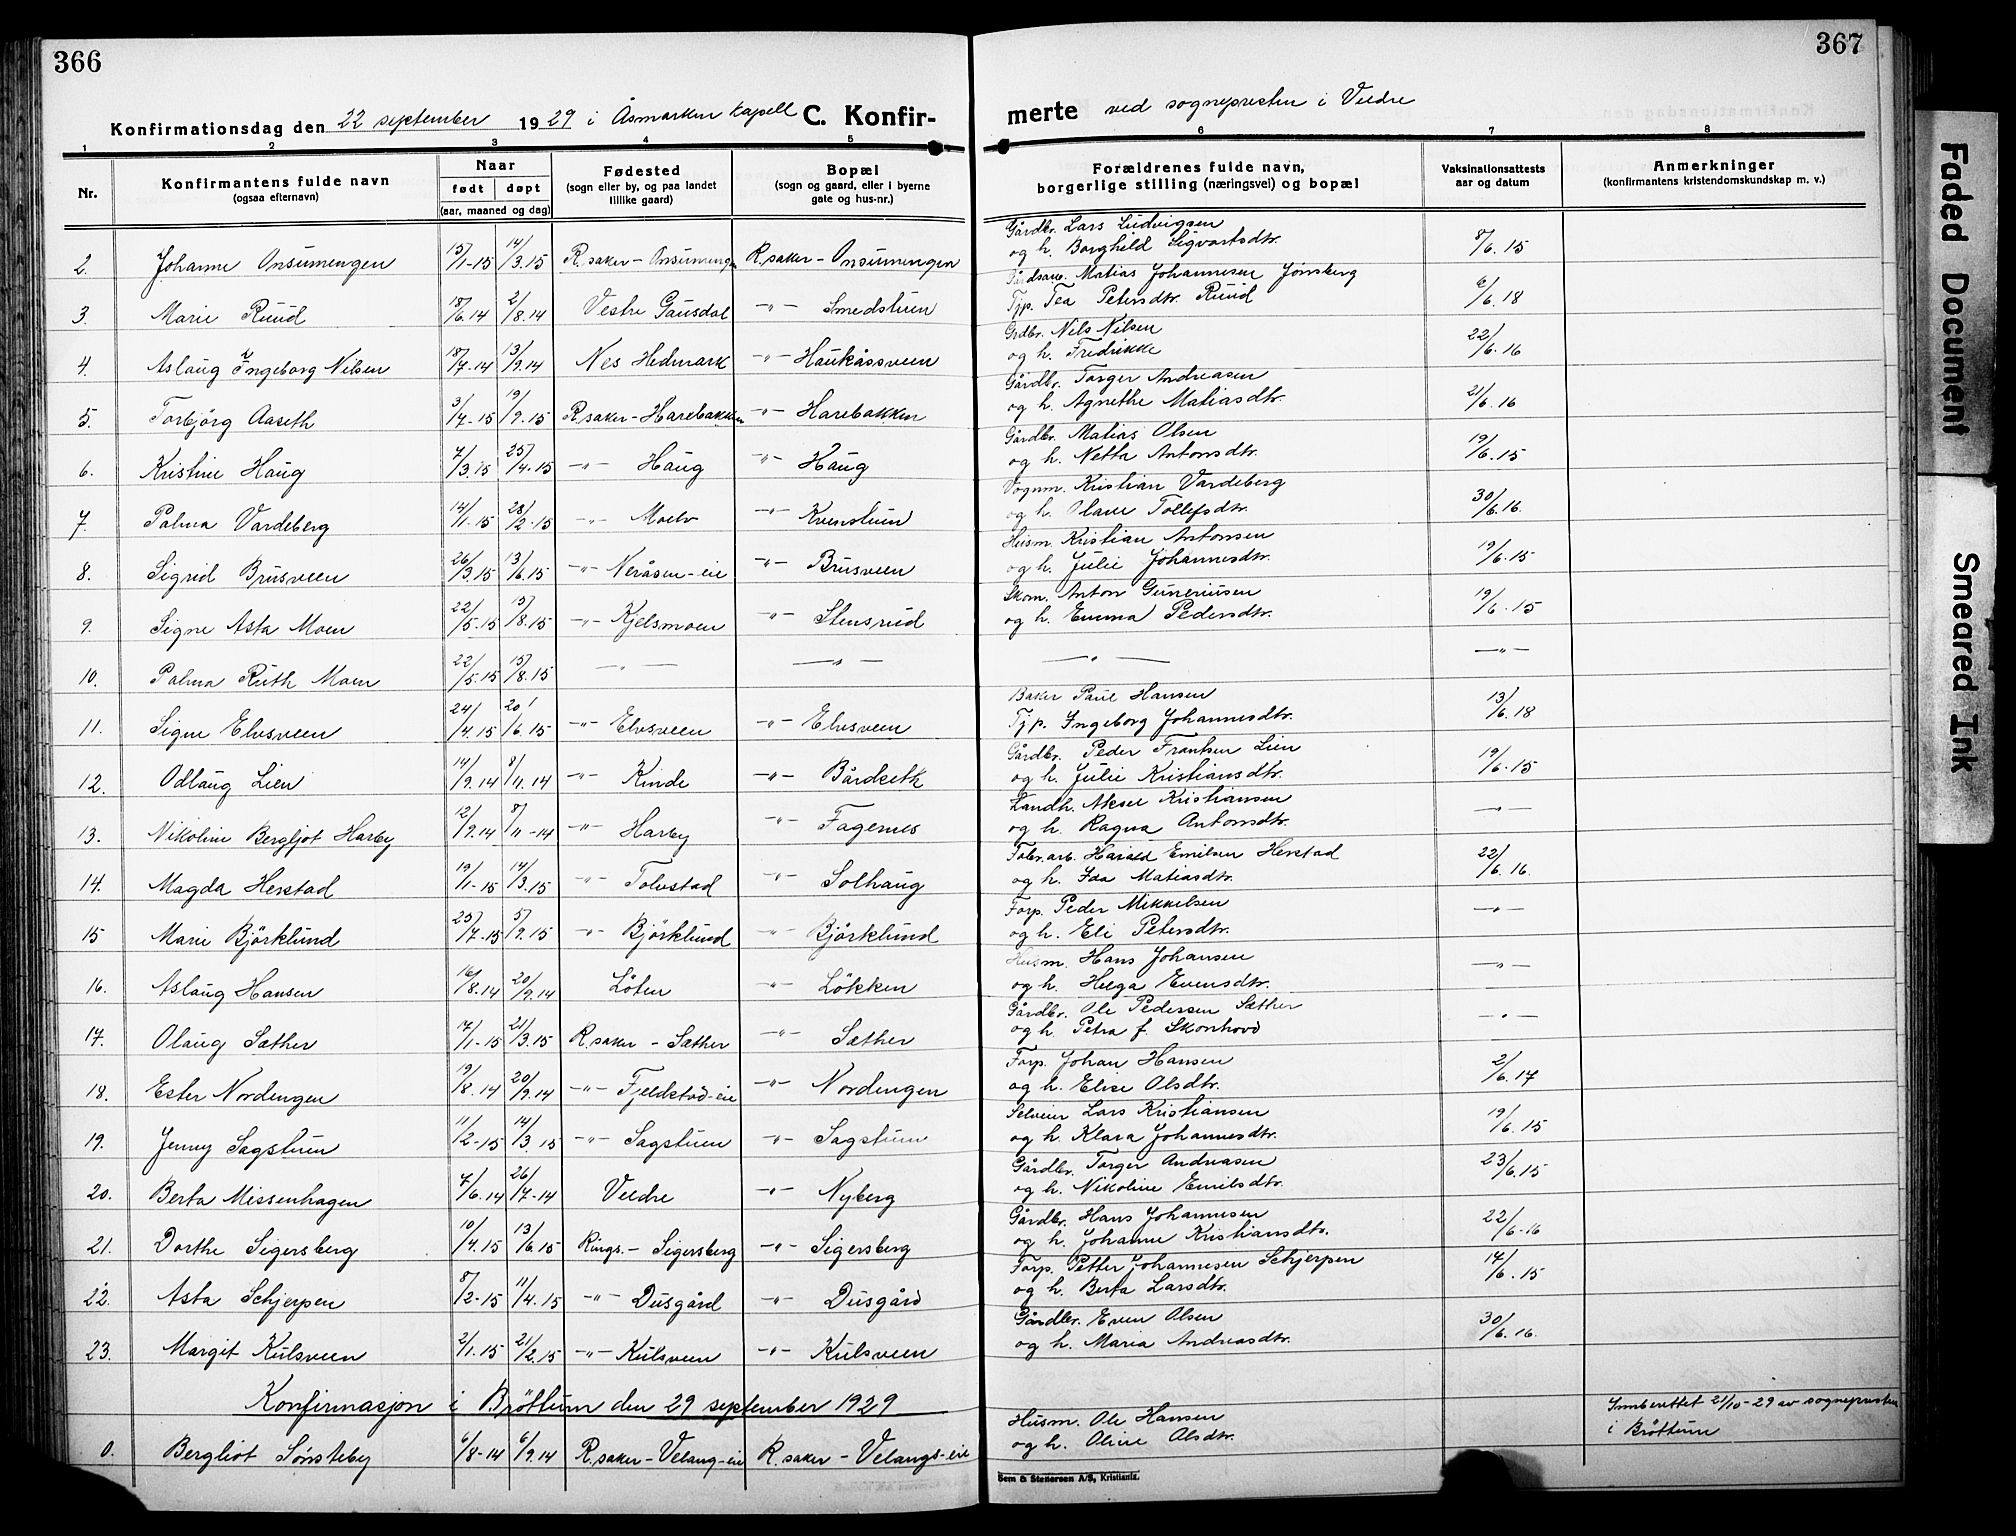 366
367
Konfirmationsdag den 22 september 1929 i Åsmarken kapell C. Konfir-
merte ved sognepresten i Veldre
1 2 3 4 5 6 7 8
Nr. Konfirmantens fulde navn (ogsaa efternavn) Naar født døpt (aar, maaned og dag) Fødested (sogn eller by, og paa landet tillike gaard) Bopæl (sogn og gaard, eller i byerne gate og hus-nr.) Forældrenes fulde navn, borgerlige stilling (næringsvei) og bopæl Vaksinationsattests aar og datum Anmerkninger (konfirmantens kristendomskundskap m. v.)
2. Johanne Onsumengen 15/1-15 14/3.15 R.saker - Onsumengen R.saker - Onsumengen Gårdbr. Lars Ludvigsen og h. Borghild Sigvartsdtr. 8/6.15
3. Marie Ruud 18/6.14 2/8.14 Vestre Gausdal -"- Smedstuen Gårdsarb. Matias Johannesen Jønsberg Tjp. Tea Petersdtr. Ruud 6/6.18
4. Aslaug Ingeborg Nilsen 18/7.14 13/9.14 Nes Hedmark -"- Haukåssveen Grdbr. Nils Nilsen og h. Fredrikke 22/6.16
5. Torbjörg Aaseth 3/7-15 19/9.15 R.saker - Harebakken -"- Harebakken Gårdbr. Torger Andreasen og h. Agnethe Matiasdtr. 21/6.16
6. Kristine Haug 7/3.15 25/4.15 -"- Haug -"- Haug Gårdbr. Matias Olsen og h. Netta Antonsdtr. 19/6.15
7. Palma Vardeberg 14/1-15 28/2-15 -"- Moelv -"- Kvenstuen Vognm. Kristian Vardeberg og h. Olave Tollefsdtr. 30/6.16.
8. Sigrid Brusveen 26/3.15 13/6.15 -"- Neråsen-eie -"- Brusveen Husm. Kristian Antonsen og h. Julie Johannesdtr. 19/6-15
9. Signe Asta Moen 22/5.15 15/8.15 -"- Kjelsmoen -"- Stensrud Skom. Anton Guneriusen og h. Emma Pedersdtr. 19/6-15
10. Palma Ruth Moen 22/5.15 15/8.15 -"- -"- -"- -"-
11. Signe Elvsveen 24/4.15 20/6.15 -"- Elvsveen -"- Elvsveen Baker Paul Hansen Tjp. Ingeborg Johannesdtr. 13/6.18
12. Odlaug Lien 14/9.14 8/11.14 -"- Kinde -"- Bårdseth Gårdbr. Peder Frantsen Lien og h. Julie Kristiansdtr. 19/6-15
13. Nikoline Bergljot Harby 12/9.14 8/11-14 -"- Harby -"- Fagernes Landh. Aksel Kristiansen og h. Ragna Antonsdtr. -"-
14. Magda Herstad 19/1-15 14/3.15 -"- Tolvstad -"- Solhaug Fabr.arb. Harald Emilsen Herstad og h. Ida Matiasdtr. 22/6.16.
15 Marie Björklund 25/7-15 5/9.15 -"- Björklund -"- Björklund Forp. Peder Mikkelsen og h. Eli Petersdtr. -"-
16. Aslaug Hansen 16/8.14 20/9.14 Löten -"- Lökken Husm. Hans Johansen og h. Helga Evensdtr. -"-
17. Olaug Sæther 17/1-15 21/3.15 R.saker - Sæther -"- Sæther Gårdbr. Ole Pedersen Sæther og h. Petra f. Skonhovd -"-
18. Ester Nordengen 19/8.14 20/9.14 -"- Fjeldstad-eie -"- Nordengen Forp. Johan Hansen og h. Elise Olsdtr. 2/6.17
19. Jenny Sagstuen 11/2-15 14/3.15 -"- Sagstuen -"- Sagstuen Selveier Lars Kristiansen og h. Klara Johannesdtr. 19/6.15
20. Berta Missenhagen 7/6.14 26/7-14 Veldre -"- Nyberg Gårdbr. Torger Andreasen og h. Nikoline Emilsdtr. 23/6.15
21. Dorthe Sigersberg 10/4.15 13/6.15 Rings. - Sigersberg -"- Sigersberg Gårdbr. Hans Johannesen og h. Johanne Kristiansdtr. 22/6-16
22. Asta Schjerpen 8/2-15 11/4.15 -"- Dusgård -"- Dusgård Forp. Petter Johannesen Schjerpen og h. Berta Larsdtr. 14/6.15
23. Margit Kulsveen 2/1.15 21/2.15 -"- Kulsveen -"- Kulsveen Gårdbr. Even Olsen og h. Maria Andreasdtr. 30/6.16.
Konfirmasjon i Bröttum den 29 september 1929
0. Bergliot Sønsteby 6/8-14 6/9.14 R.saker - Velang-eie R.saker - Velangs-eie Husm. Ole Hansen og h. Oline Olsdtr. Innberettet 21/10-29 av sognepresten i Bröttum
Sem & Stenersen A/S, Kristiania.
Faded Document
Smeared Ink